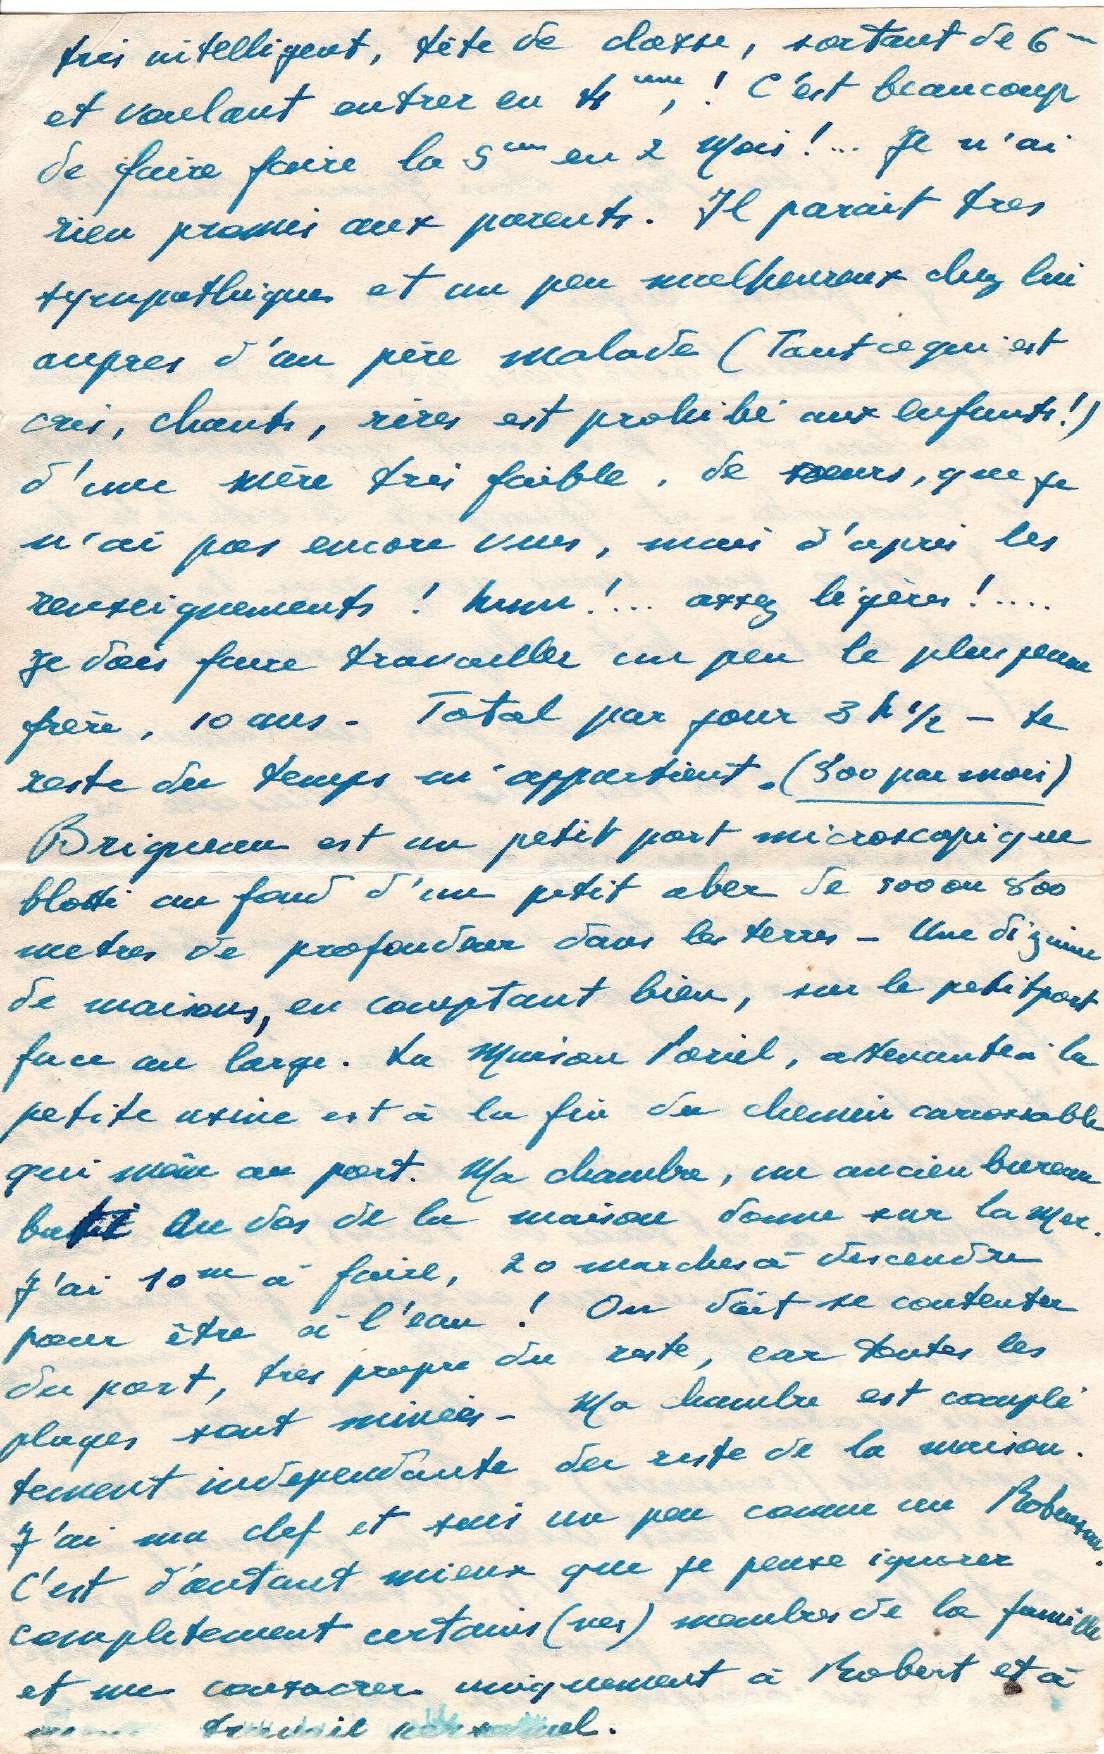 très intelligent, tête de classe, sortant de 6me
et voulant entrer en 4eme, ! C'est beaucoup
de faire faire la 5eme en 2 Mois !... Je n'ai
rien promis aux parents. Il parait tres
sympathique et un peu malheureux chez lui
aupres d'un père malade (Tout ce qui est
cris, chants, rires est prohibé aux enfants !)
d'une mère très faible, de soeurs, que je
n'ai pas encore vues, mais d'après les
renseignements ! hum !... assez légères !....
Je dois faire travailler un peu le plus jeune
frère, 10 ans - Total par jour 3 h 1/2 - Le
reste du temps m'appartient. (800 par mois)
Brigneau est un petit port microscopique
blotti au fond d'un petit aber de 500 ou 800
metres de profondeur dans les terres - Une dizaine
de maisons, en comptant bien, sur le petit port
face au large. La Maison Loriel, attenante à la
petite usine est à la fin du chemin carrossable
qui mène au port. Ma chambre, un ancien bureau
bâti Au dos de la maison donne sur la Mer.
J'ai 10m à faire, 20 marches à descendre
pour être à l'eau ! On doit se contenter
du port, tres propre du reste, car toutes les
plages sont minées - Ma chambre est complè
tement independante du reste de la maison.
J'ai ma clef et suis un peu comme un Robinson.
C'est d'autant mieux que je peuxe ignorer
completement certains (nes) membres de la famille
et me consacrer uniquement à Robert et à
travail personnel.